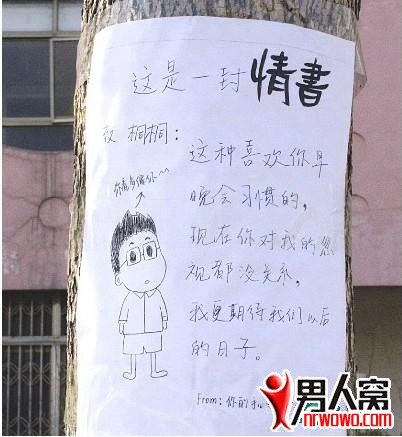 这是一封情書
致 桐桐：
这种喜欢你早
晚会习惯的，
现在你对我的忽
视都没关系，
我更期待我们以后
的日子。
From: 你的
男人窝
nrwowo.com